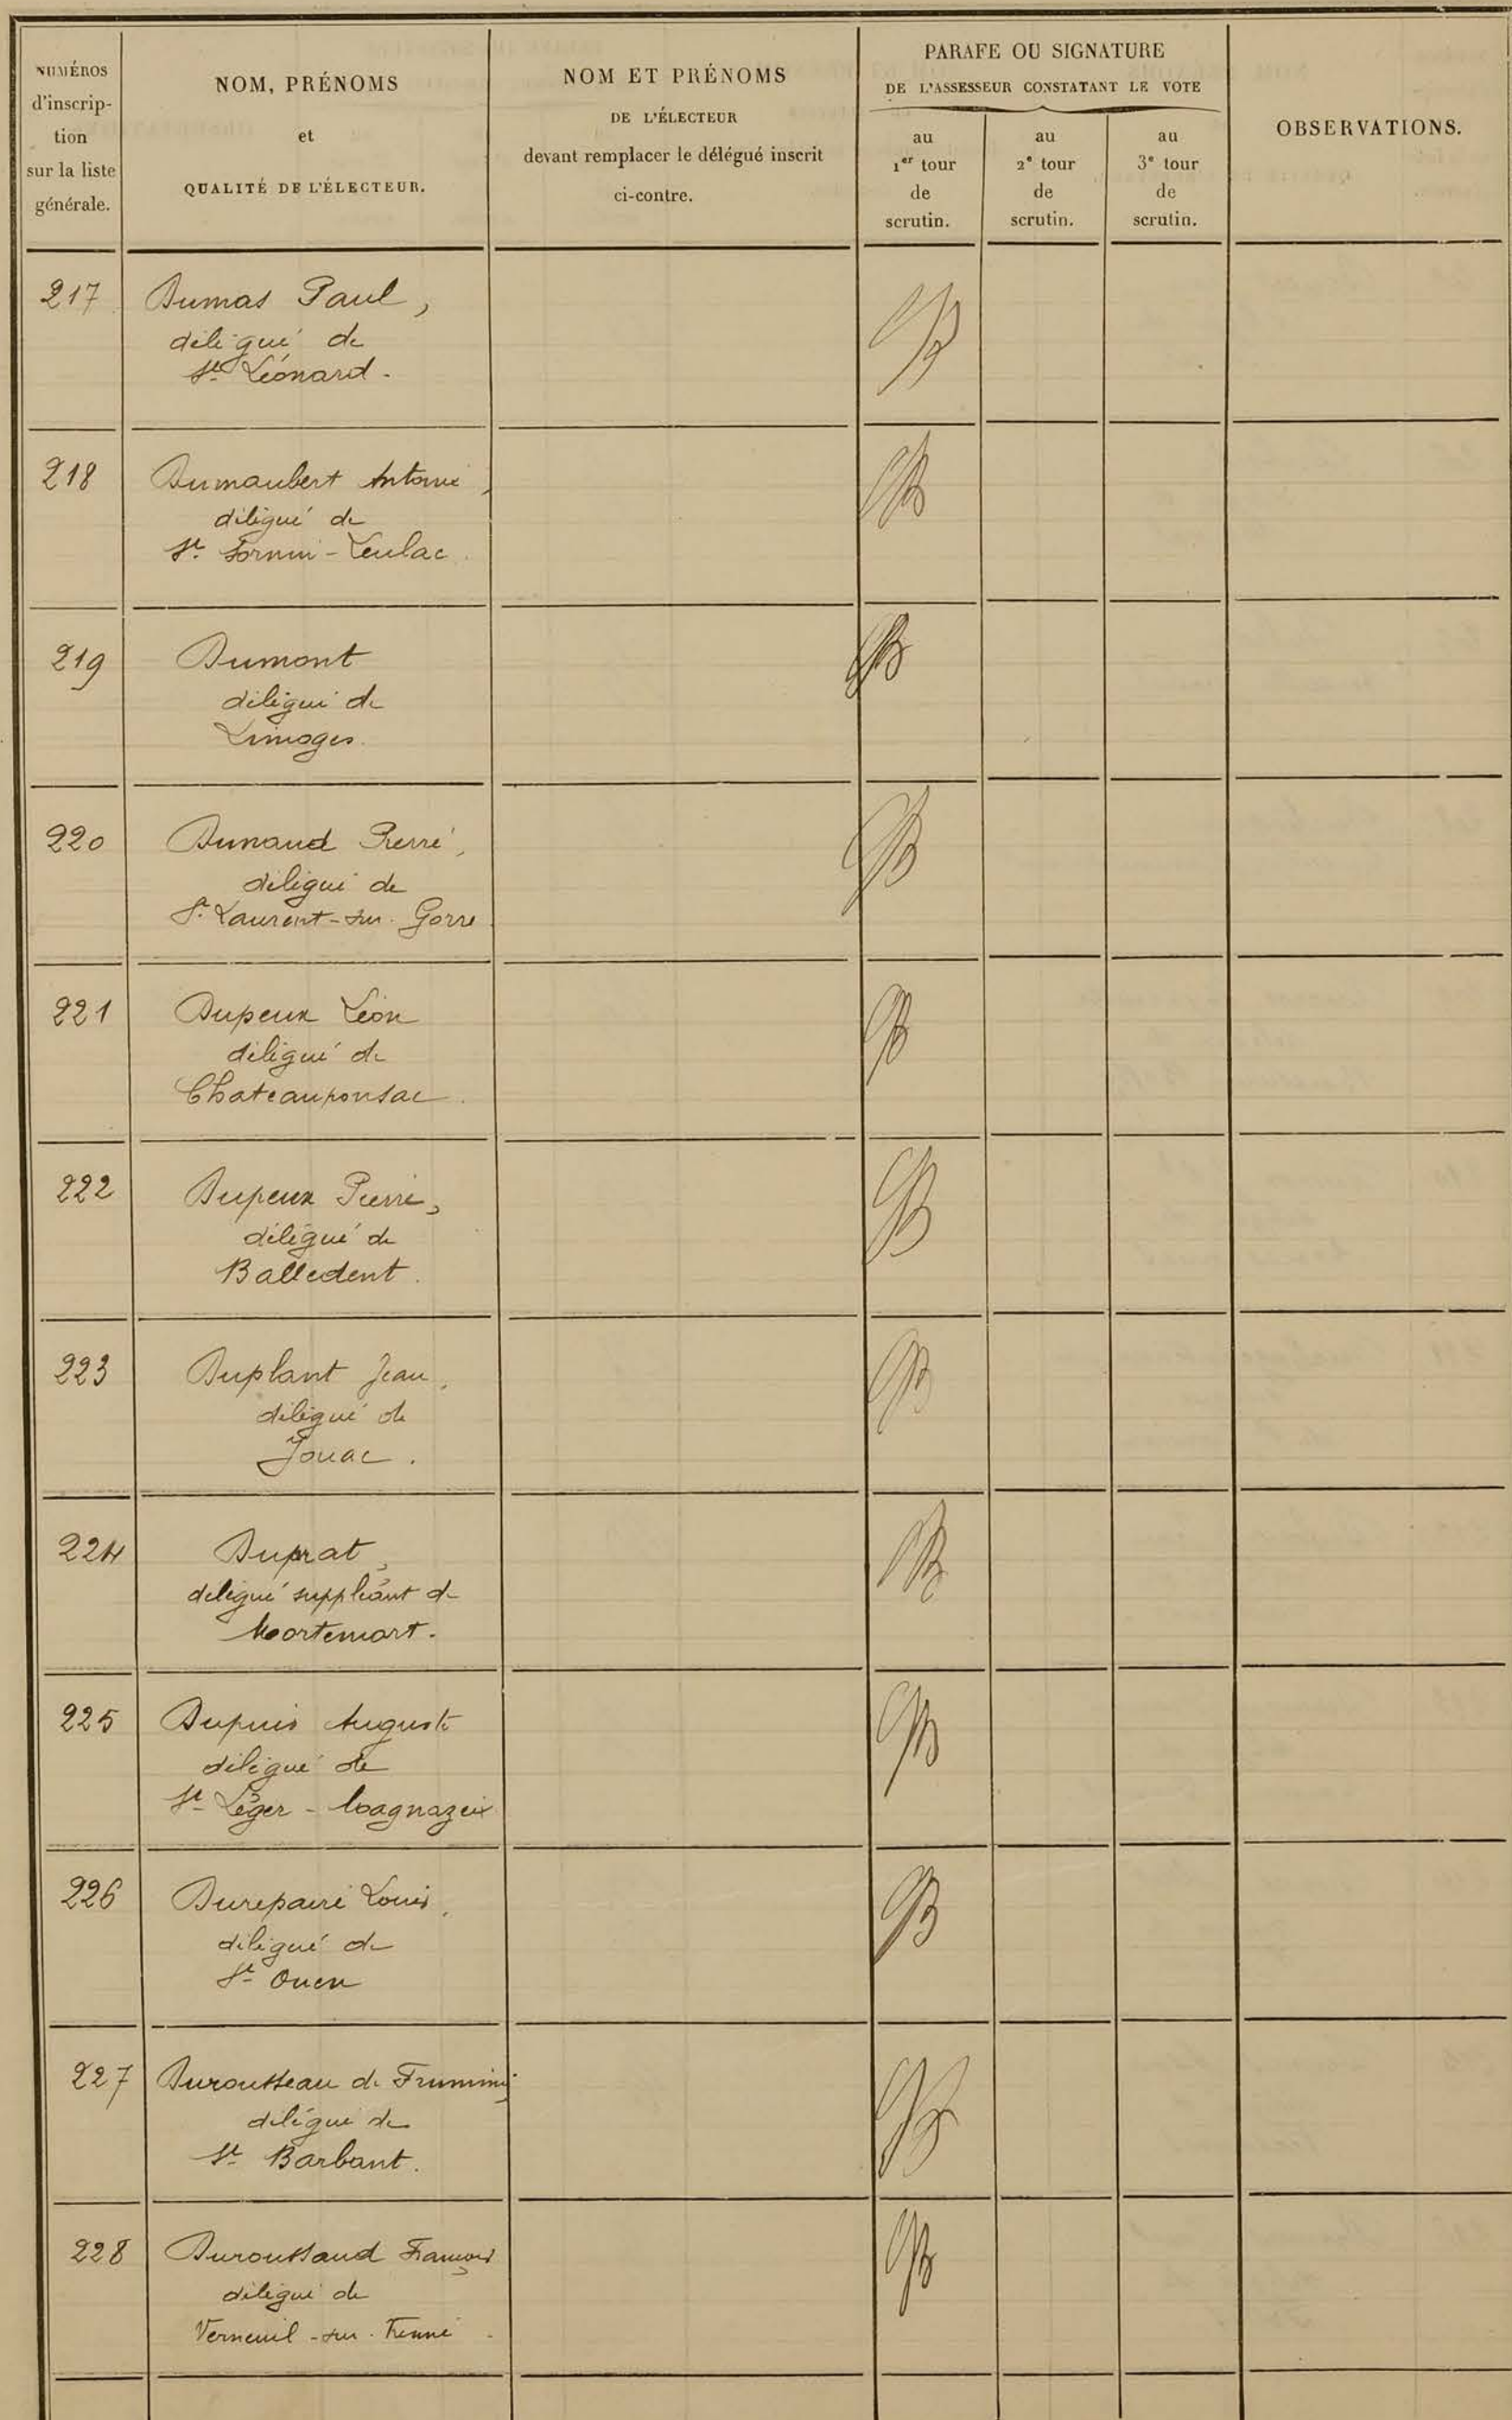 NUMÉROS
d'inscrip-
tion
sur la liste
générale.
NOM, PRÉNOMS
et
QUALITÉ DE L'ÉLECTEUR.
NOM ET PRÉNOMS
DE L'ÉLECTEUR
devant remplacer le délégué inscrit
ci-contre.
PARAFE OU SIGNATURE
DE L'ASSESSEUR CONSTATANT LE VOTE
au
1er tour
de
scrutin.
au
2e tour
de
scrutin.
au
3e tour
de
scrutin.
OBSERVATIONS.
217 Dumas Paul,
délégué de
St Léonard.
218 Dumaubert Antoine,
délégué de
St Sornin-Leulac.
219 Dumont
délégué de
Limoges.
220 Dunaud Pierre,
délégué de
St Laurent-sur-Gorre
221 Dupeux Léon
délégué de
Chateauponsac.
222 Dupeux Pierre,
délégué de
Balledent.
223 Duplant Jean,
délégué de
Jouac.
224 Duprat,
délégué suppléant de
Mortemart.
225 Dupuis Auguste
délégué de
St Léger-Magnazeix
226 Durepaire Louis,
délégué de
St Ouen
227 Durousseau de
délégué de
St Barbant.
228 Duroussaud François
délégué de
Verneuil-sur-Vienne.